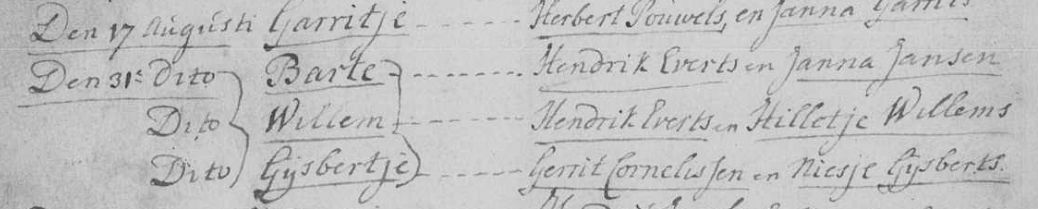 Den 17 Augusti Garritje ------ Herbert Pouwels, en Janna Garrits
Den 31e Dito Barte -------- Hendrik Everts en Janna Jansen
Dito Willem -------- Hendrik Everts en Hilletje Willems
Dito Gijsbertje ------ Gerrit Cornelissen en Niesje Gijsberts.